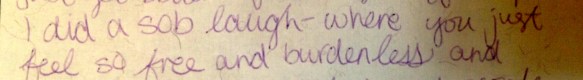 I did a sob laugh - where you just
feel so free and burdenless and